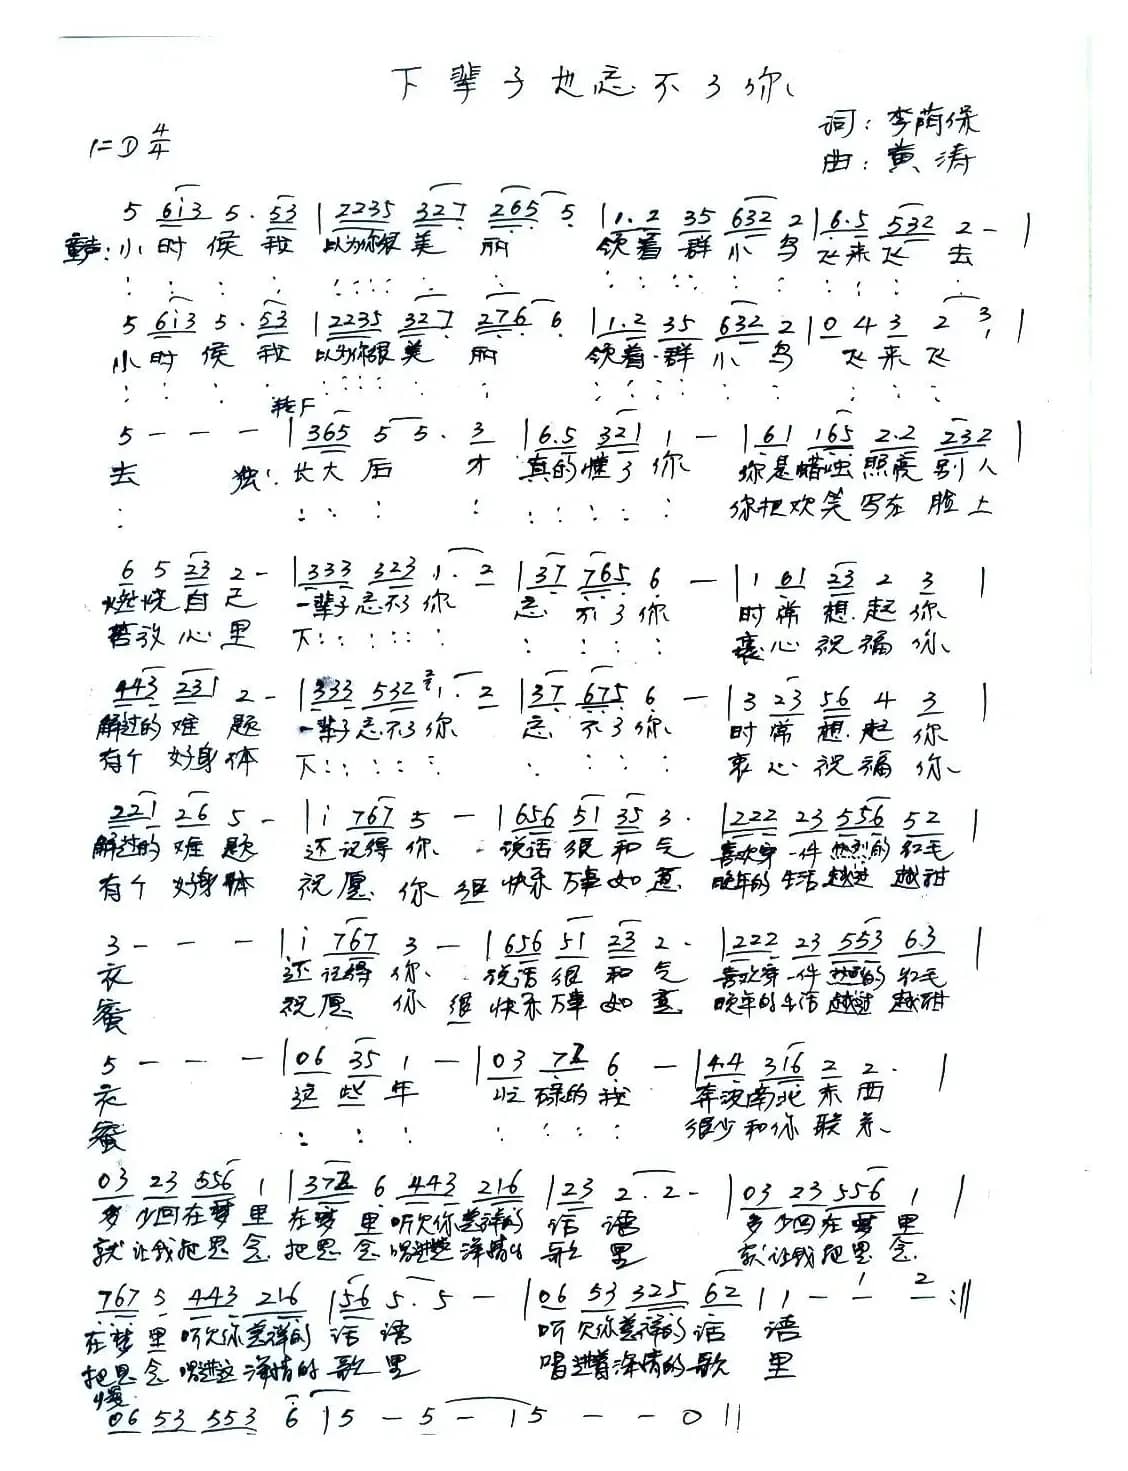 下辈子也忘不了你
1=D 4/4
词：李荫保
曲：黄涛
5 6i3 5. 53 | 2235 327 265 5 | 1.2 35 632 2 | 6.5 532 2 - |
童声：小时候我 以为你很美丽 领着群小鸟飞来飞去
5 6i3 5. 53 | 2235 327 276 6 | 1.2 35 632 2 | 0 4 3 2 3 1 |
小时候我 以为你很美丽 领着群小鸟 飞来飞
转F
5 - - - | 365 5 5. 3 | 6.5 321 1 - | 61 165 2.2 232 |
去 独：长大后才 真的懂了你 你是蜡烛照亮别人
你把欢笑写在脸上
6 5 23 2 - | 333 323 1. 2 | 37 765 6 - | 1 61 23 2 3 |
燃烧自己 一辈子忘不了你 忘不了你 时常想起你
苦放心里 下 衷心祝福你
443 231 2 - | 333 532 2 1. 2 | 37 675 6 - | 3 23 56 4 3 |
解过的难题 一辈子忘不了你 忘不了你 时常想起你
有个好身体 下 衷心祝福你
221 26 5 - | i 767 5 - | 656 51 35 3. | 222 23 556 52 |
解过的难题 还记得你 说话很和气 喜欢穿一件热烈的红毛
有个好身体 祝愿你很快乐万事如意 晚年的生活越过越甜
3 - - - | i 767 3 - | 656 51 23 2. | 222 23 553 6.3 |
衣 还记得你 说话很和气 喜欢穿一件热烈的红毛
蜜 祝愿你很快乐万事如意 晚年的生活越过越甜
5 - - - | 06 35 1 - | 03 77 6 - | 4.4 316 2 2. |
衣 这些年 忙碌的我 奔波南北东西
蜜 很少和你联系
03 23 556 1 | 377 6 443 216 | 23 2. 2 - | 03 23 556 1 |
多少回在梦里 在梦里听你慈祥的话语 多少回在梦里
就让我把思念 把思念唱进深情的歌里 就让我把思念
767 5 443 216 | 56 5. 5 - | 06 53 325 62 | 1 - 1 2 :||
在梦里听你慈祥的话语 听你慈祥的话语
把思念唱进这深情的歌里 唱进着深情的歌里
慢
06 53 553 6 | 5 - 5 - | 5 - - 0 ||